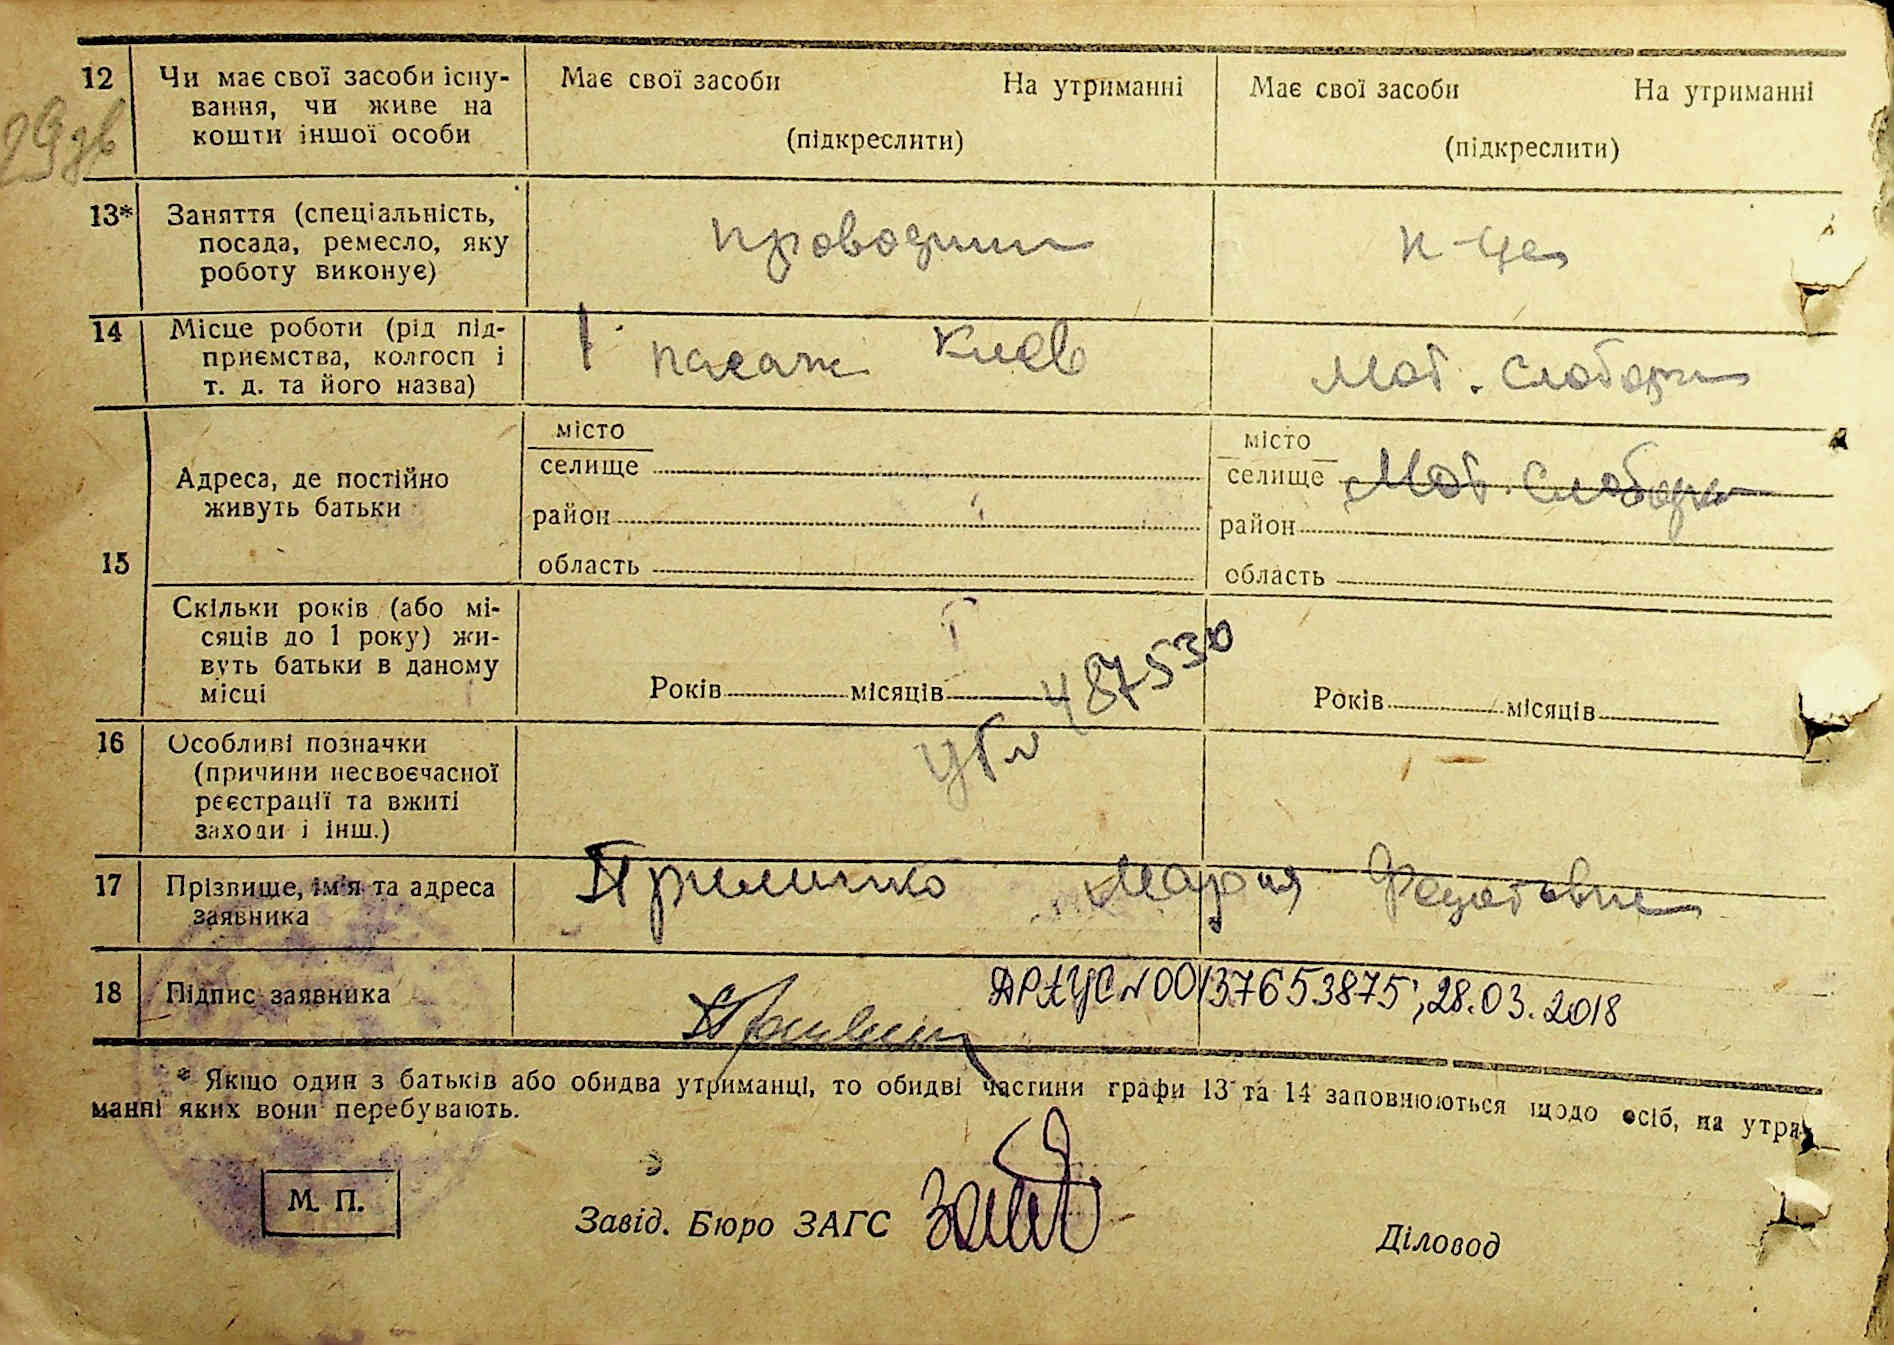 29 зв
12 Чи має свої засоби існу-
вання, чи живе на
кошти іншої особи
Має свої засоби На утриманні
(підкреслити)
Має свої засоби На утриманні
(підкреслити)
13* Заняття (спеціальність,
посада, ремесло, яку
роботу виконує)
проводник
к-ца
14 Місце роботи (рід під-
приємства, колгосп і
т. д. та його назва)
1 пасаж Киев
Мот. Слобода
15
Адреса, де постійно
живуть батьки
місто
селище
район
область
місто
селище Мот. Слобода
район
область
Скільки років (або мі-
сяців до 1 року) жи-
вуть батьки в даному
місці
Років місяців
Років місяців
487530
16 Особливі позначки
(причини несвоєчасної
реєстрації та вжиті
заходи і інш.)
17 Прізвище, ім'я та адреса
заявника
Мария Федотовна
18 Підпис заявника
ДРАЦС N00137653875; 28.03.2018
* Якщо один з батьків або обидва утриманці, то обидві частини графи 13 та 14 заповнюються щодо осіб, на утри-
манні яких вони перебувають.
М. П.
Завід. Бюро ЗАГС
Діловод